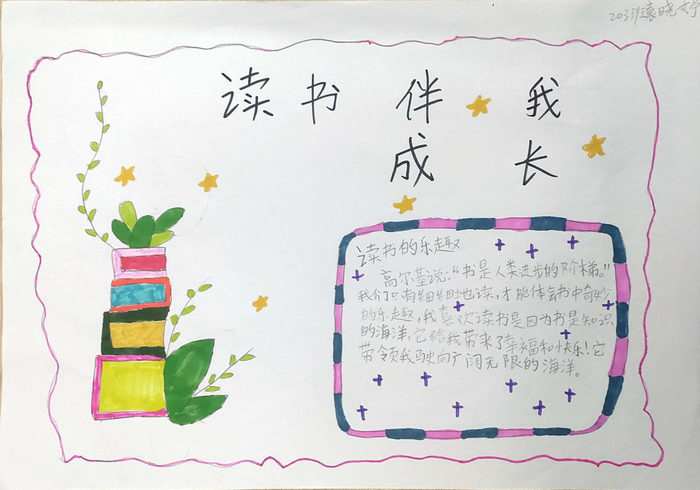 读书伴我
成长
读书的乐趣
高尔基说:“书是人类进步的阶梯。”
我们只有细细地读,才能体会书中奇妙
的乐趣,我喜欢读书是因为书是知识
的海洋,它给我带来了幸福和快乐!它
带领我驶向广阔无限的海洋。